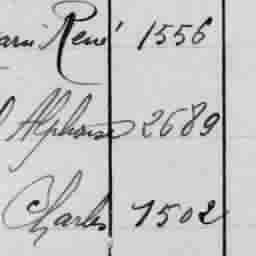 René 1556
Alphonse 2689
Charles 1502